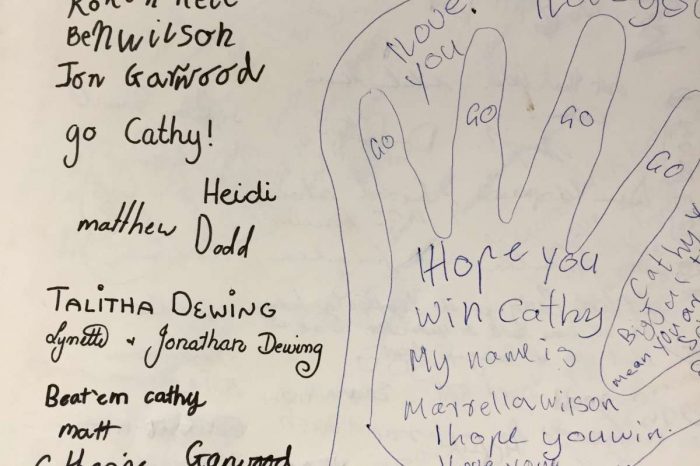 Ben wilson
Jon Garwood
go Cathy!
Heidi
matthew Dodd
TALITHA DEWING
Lynette + Jonathan Dewing
Beat'em cathy
matt
Garwood
I love
YOU
I love you
GO
GO
GO
GO
I Hope you
win Cathy
My name is
Marrella wilson
I hope you win.
I love you
Cathy
Bigger t
mean you a